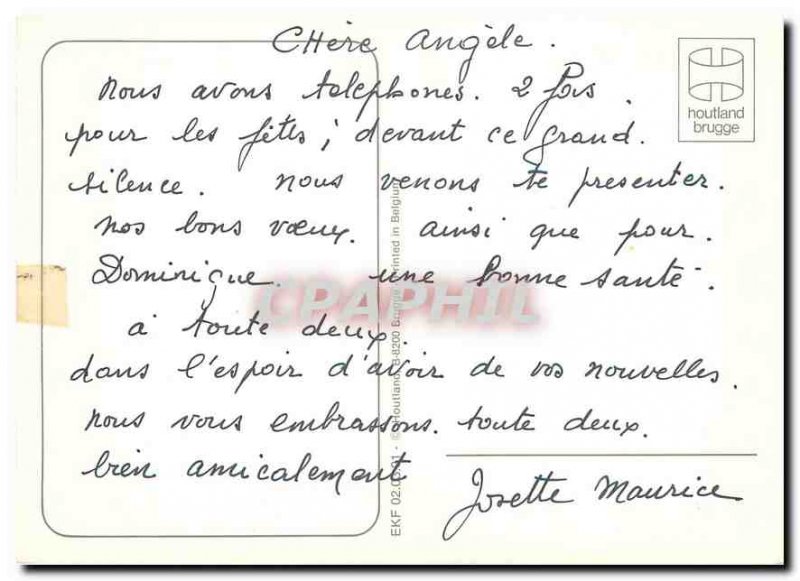 CHère Angèle.
nous avons telephones. 2 fois.
pour les fêtes, devant ce grand.
silence. nous venons te presenter.
nos bons vœux. ainsi que pour.
Dominique. une bonne santé.
à toute deux.
dans l'espoir d'avoir de vos nouvelles.
nous vous embrassons. toute deux.
bien amicalement
Josette Maurice
houtland
brugge
CPAPHIL
EKF 02.06.91 - © Houtland, B-8200 Brugge Printed in Belgium